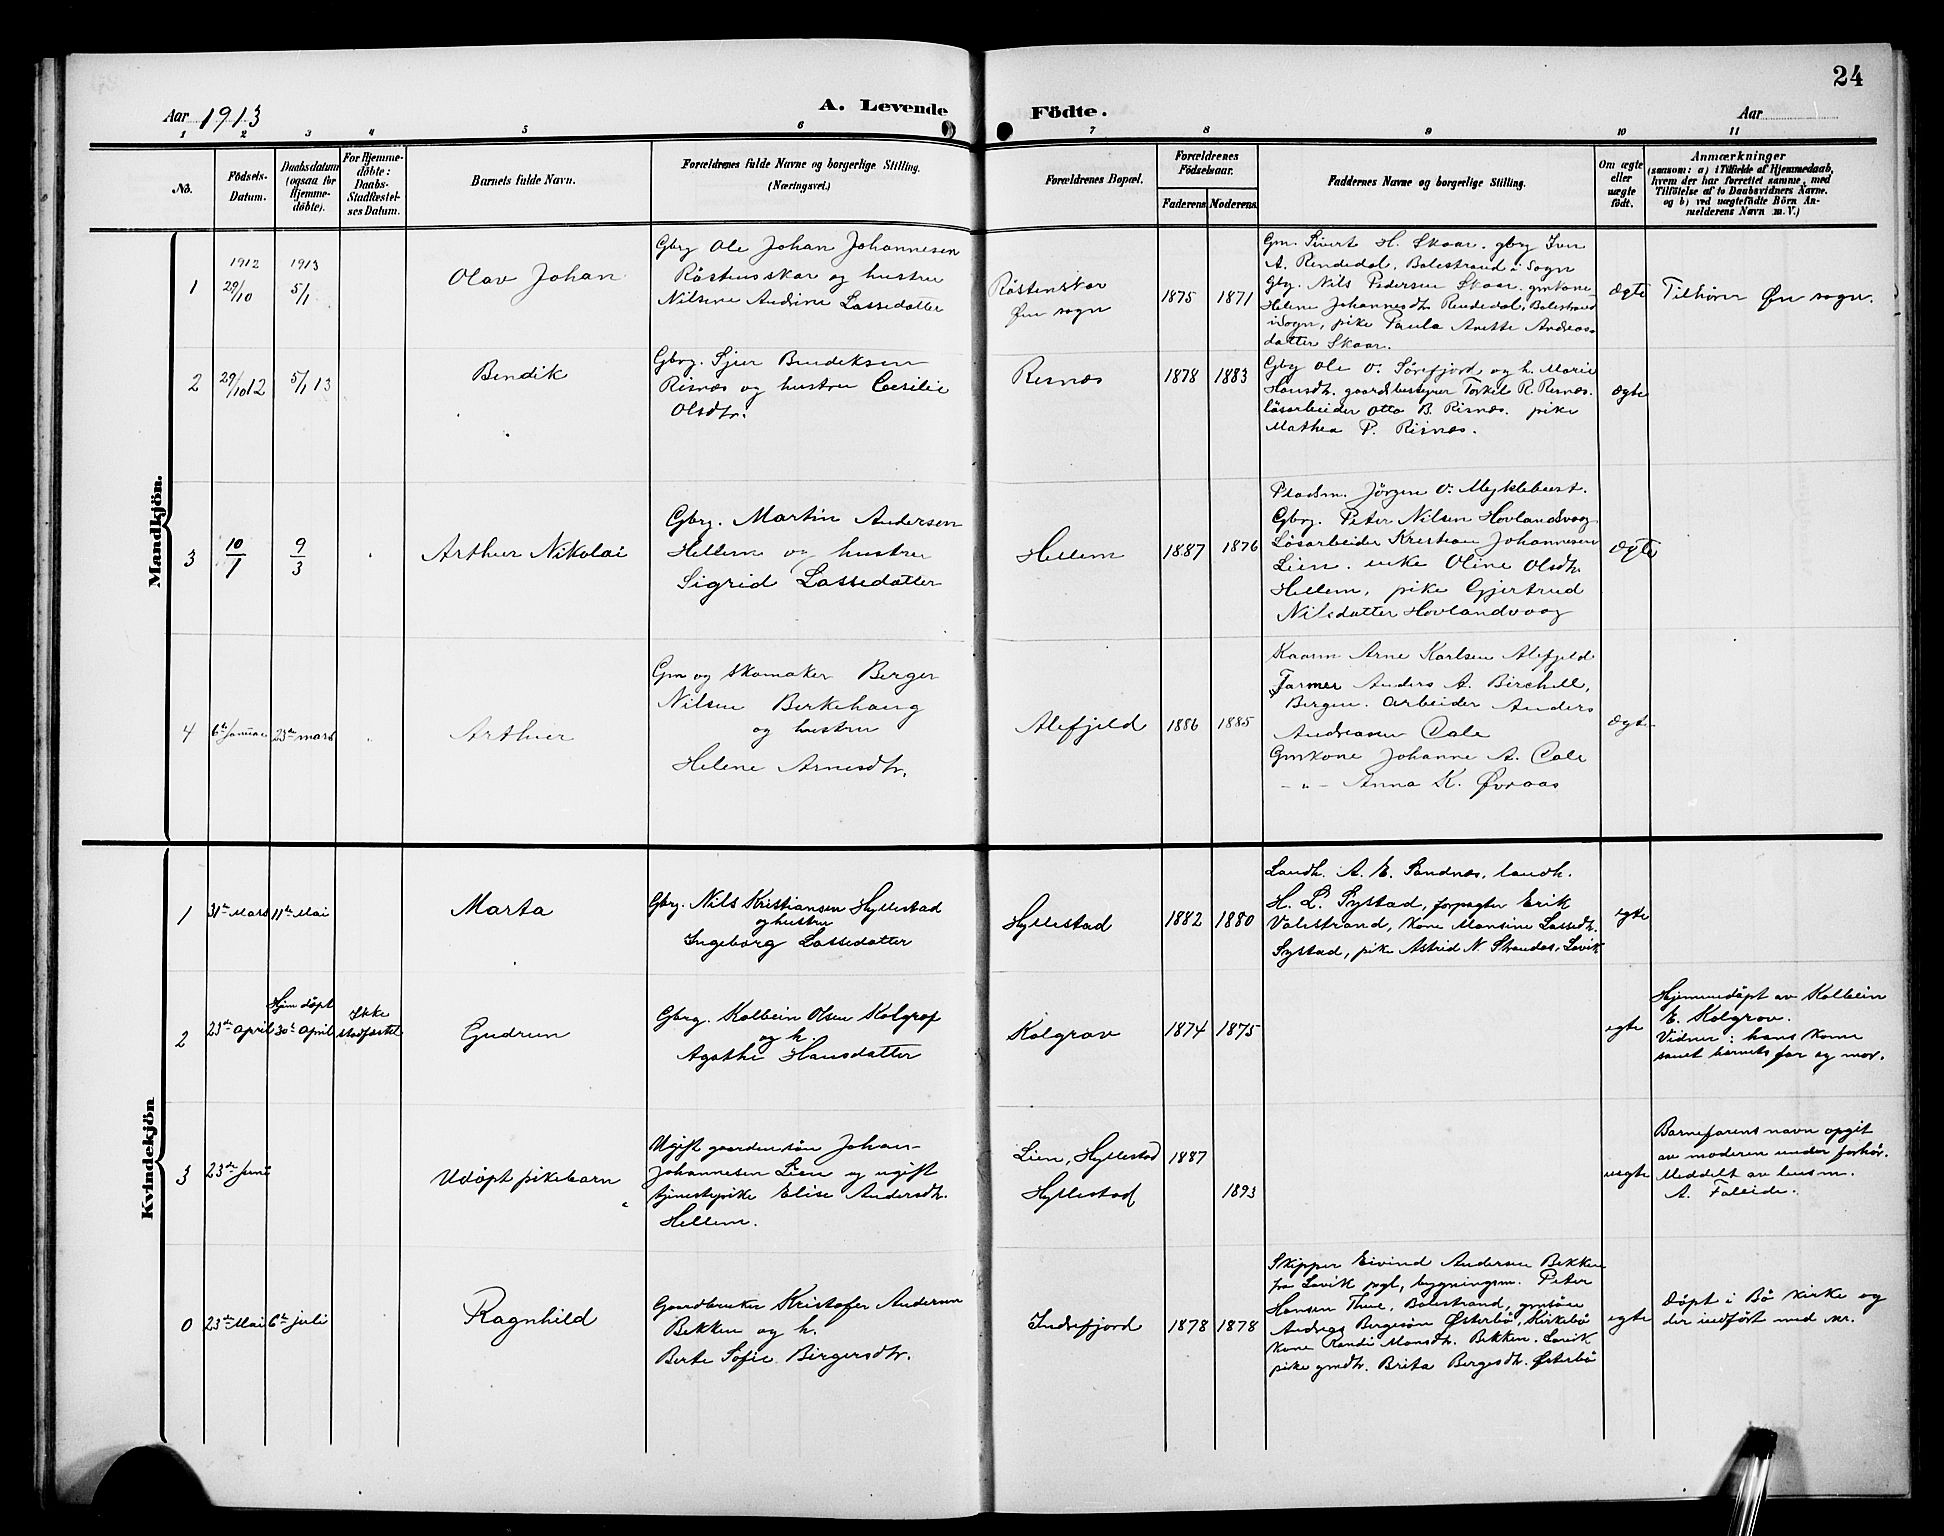 24
Aar 1913
A. Levende
Födte.
Aar
1 2 3 4 5 6 7 8 9 10 11
No.
Födsels-
Datum.
Daabsdatum
(ogsaa for
Hjemme-
döbte).
For Hjemme-
döbte:
Daabs-
Stadfæstel-
ses Datum.
Barnets fulde Navn.
Forældrenes fulde Navne og borgerlige Stilling.
(Næringsvei.)
Forældrenes Bopæl.
Forældrenes
Födselsaar.
Faderens Moderens
Faddernes Navne og borgerlige Stilling.
Om ægte
eller
uægte
födt.
Anmærkninger
(saasom: a) i Tilfælde af Hjemmedaab,
hvem der har forrettet samme, med
Tilföielse af to Daabsvidners Navne.
og b) ved uægtefödte Börn An-
melderens Navn m. V.)
Mandkjön.
1
1912
29/10
1913
5/1
Olav Johan
Gbrg Ole Johan Johannesen
Röstensskar og hustru
Nilsine Andrine Lassedatter
Röstenskar
Øen sogn
1875 1871
Gm. Sivert H. Skaar. gbrg Iver
A. Rendedal, Balestrand i Sogn
Gbrg. Nils Pedersen Skaar. gmkone
Helene Johannesdtr. Rendedal, Balestrand
i Sogn, pike Paula Anette Andreas-
datter Skaar.
Ægte
Tilhører Øen sogn.
2
29/10 12
5/1 13
Bendik
Gbrg. Sjur Bendiksen
Risnæs og hustru Cecilie
Olsdtr.
Risnæs
1878 1883
Gbrg Ole O. Sörefjord og h. Marie
Hansdtr. gaardsbestyrer Torkel R. Risnæs.
lösarbeider Otto B. Risnæs. pike
Mathea P. Risnæs.
ægte
3
10/1
9/3
Arthur Nikolai
Gbrg. Martin Andersen
Hellem og hustru
Sigrid Lassedatter
Hellem
1887 1876
Pladsm. Jörgen O. Myklebust.
Gbrg. Peter Nilsen Hovlandsvaag
Lösarbeider Kristian Johannesen
Lien. enke Oline Olsdtr.
Hellem, pike Gjertrud
Nilsdatter Hovlandsvaag
Ægte
4
6te Januar
23de mars
Arthur
Gm og skomaker Berger
Nilsen Birkehaug
og hustru
Helene Arnesdtr.
Alefjeld
1886 1885
Kaarm Arne Karlsen Alefjeld
Farmer Anders A. Birchell,
Bergen. Arbeider Anders
Andreasen Cale
Gmkone Johanne A. Cale
- " - Anna K. Øvraas
ægte
Kvindekjön
1
31te Mars
11te Mai
Marta
Gbrg. Nils Kristiansen Hyllestad
og hustru
Ingeborg Lassedatter
Hyllestad
1882 1880
Landh. A. E. Sandnæs, landh.
H. L. Systad, forpagter Erik
Valestrand, kone Monsine Lassedtr.
Systad, pike Astrid N. Strandos, Lavik
egte
2
23de April
Hjem døpt
30te April
Ikke
stadfæstet
Gudrun
Gbrg. Kolbein Olsen Kolgrof
og h.
Agathe Hansdatter
Kolgrav
1874 1875
egte
Hjemmedøpt av Kolbein
E. Kolgrov.
Vidner: hans kone
samt barnets far og mor.
3
23de Juni
Udöpt pikebarn
Ugift gaardmansön Johan
Johannesen Lien og ugift
tjenestepike Elise Andersdtr.
Hellem.
Lien, Hyllestad
Hyllestad
1887
1893
uegte
Barnefarens navn opgit
av moderen under forhör.
Meddelt av lensm.
A. Faleide.
0
23de Mai
6te juli
Ragnhild
Gaardbruker Kristofer Andersen
Bekken og h.
Berte Sofie Birgersdtr.
Indrefjord
1878 1878
Skipper Eivind Andersen Bekken
fra Lavik pgl, bygningsm. Peter
Hansen Thue, Balestrand, gmsön
Andreas Bergesön Østerbö, Kirkebö
kone Randi Monsdtr. Bekken. Lavik
pike gmdtr. Brita Bergesdtr. Østerbö
egte
Döpt i Bö kirke og
der indført med nr.